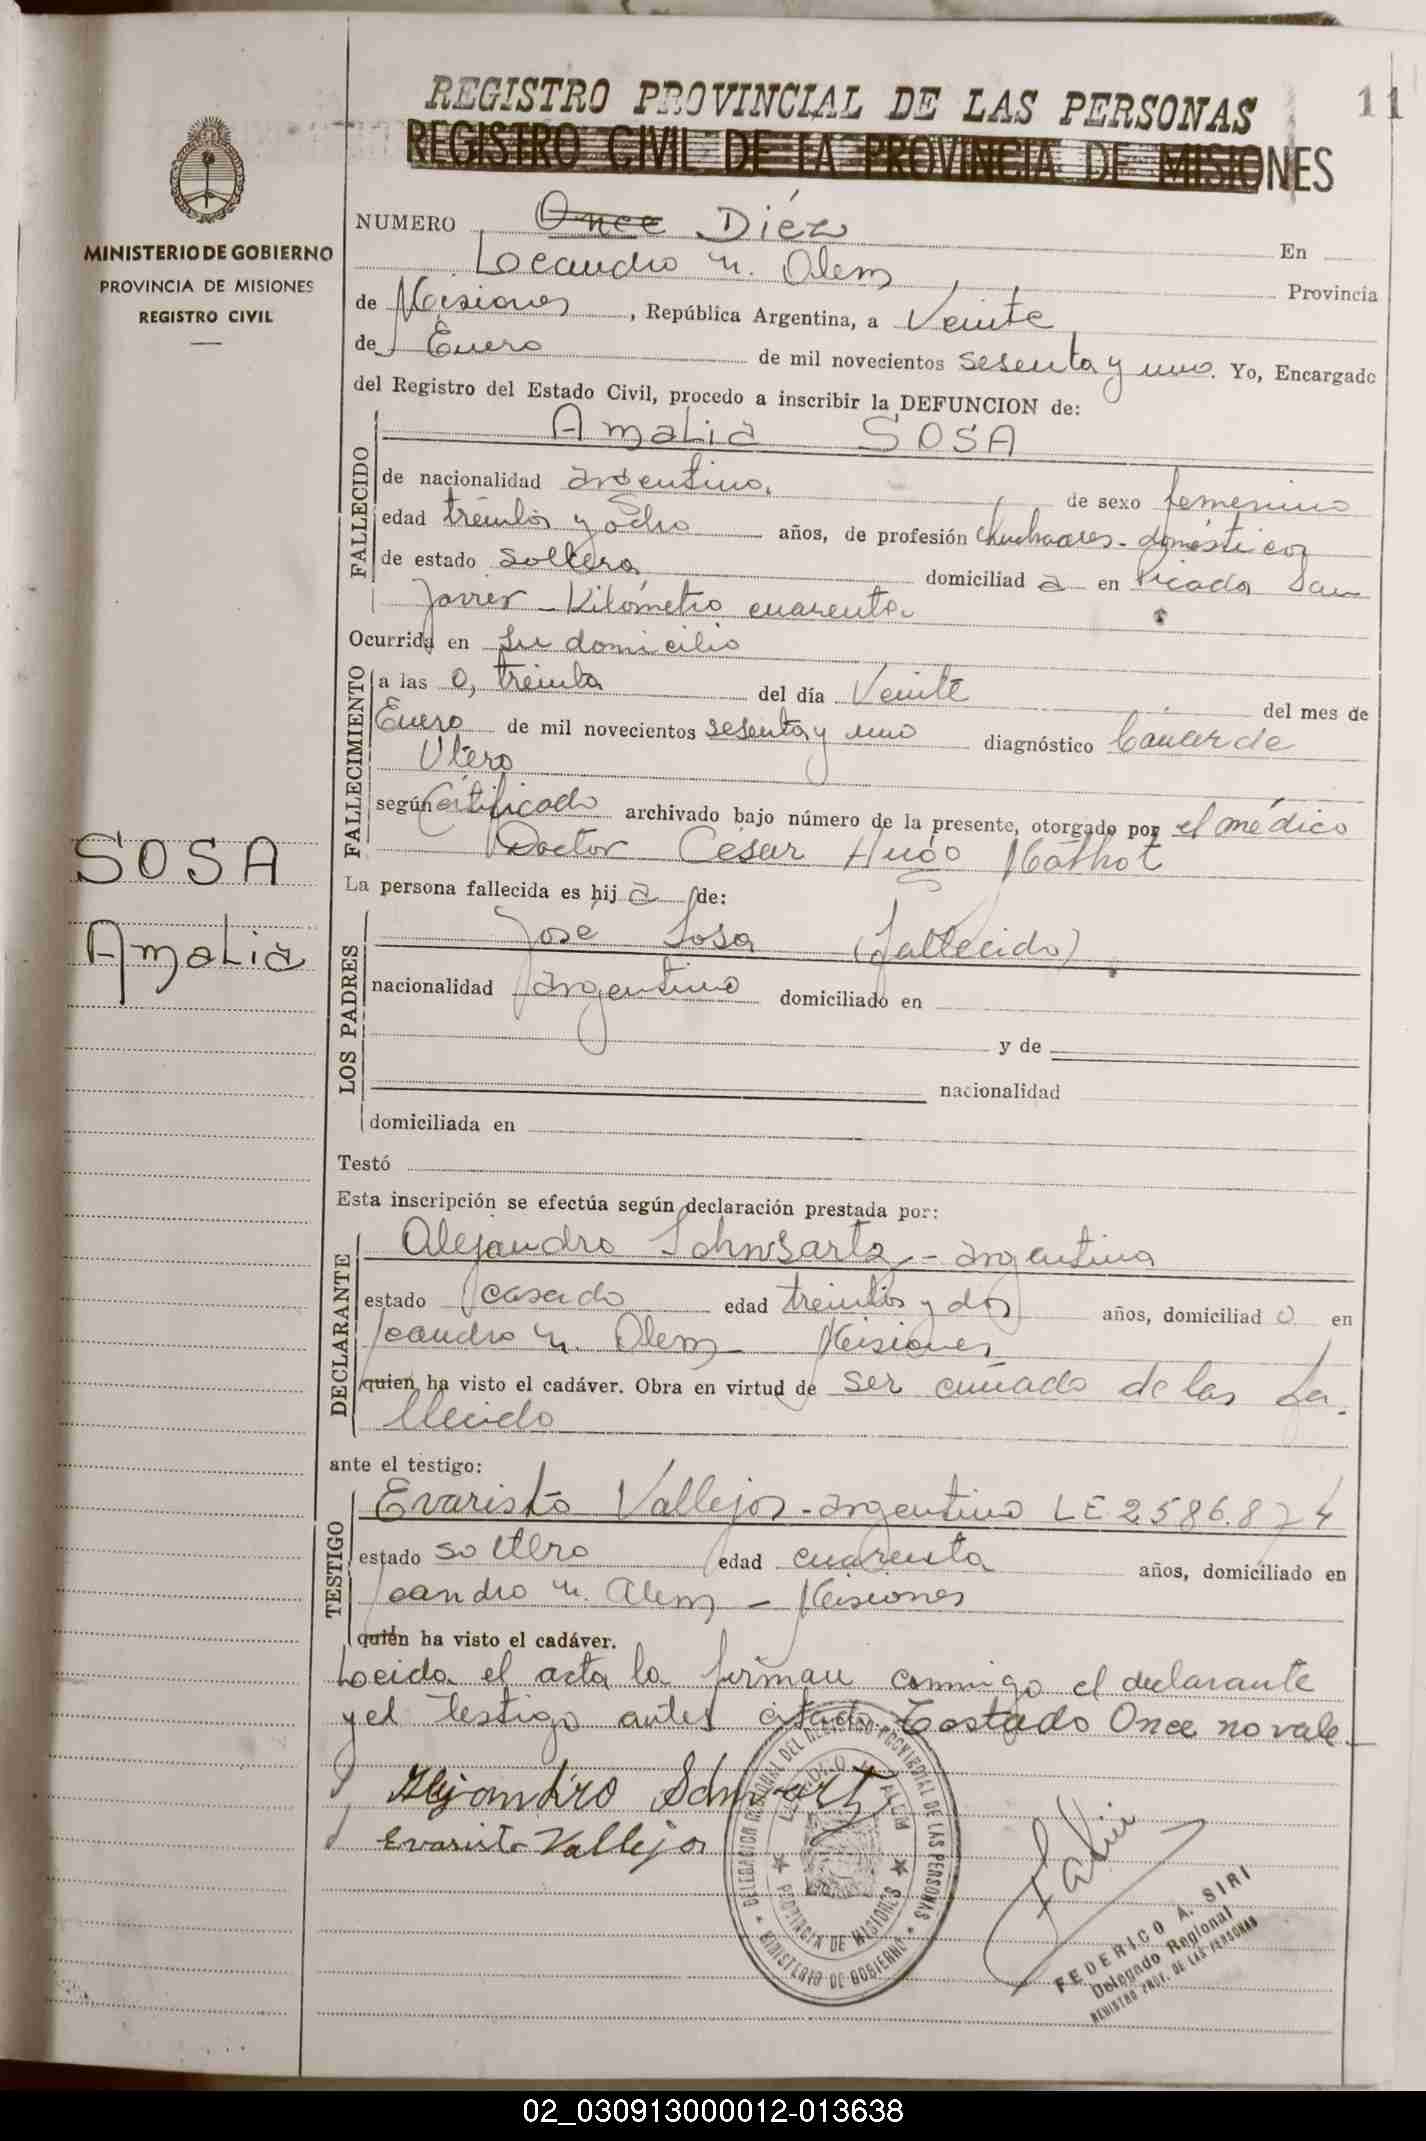 REGISTRO PROVINCIAL DE LAS PERSONAS
11
REGISTRO CIVIL DE LA PROVINCIA DE MISIONES
MINISTERIO DE GOBIERNO
PROVINCIA DE MISIONES
REGISTRO CIVIL
NUMERO Once Diéz En
Leandro N. Alem Provincia
de Misiones, República Argentina, a Veinte
de Enero de mil novecientos sesenta y uno. Yo, Encargado
del Registro del Estado Civil, procedo a inscribir la DEFUNCION de:
Amalia SOSA
FALLECIDO
de nacionalidad argentina, de sexo femenino
edad treinta y ocho años, de profesión domésticos
de estado soltera domiciliad a en Picada San
Javier - Kilómetro cuarenta.
Ocurrida en su domicilio
FALLECIMIENTO
a las 0, treinta del día Veinte del mes de
Enero de mil novecientos sesenta y uno diagnóstico Cancer de
Utero
según Certificado archivado bajo número de la presente, otorgado por el médico
Doctor César Hugo Mathot
SOSA
Amalia
La persona fallecida es hij a de:
LOS PADRES
José Sosa (fallecido)
nacionalidad argentino domiciliado en
y de
nacionalidad
domiciliada en
Testó
Esta inscripción se efectúa según declaración prestada por:
DECLARANTE
Alejandro Schwsartz - argentino
estado casado edad treinta y dos años, domiciliad o en
Leandro N. Alem Misiones
quien ha visto el cadáver. Obra en virtud de ser cuñado de las fa-
llecido
ante el testigo:
TESTIGO
Evaristo Vallejos - argentino LE 2.586.874
estado soltero edad cuarenta años, domiciliado en
Leandro N. Alem - Misiones
quién ha visto el cadáver.
Leida el acta la firman conmigo el declarante
y el testigo antes citado. Testado Once no vale.-
Alejandro Schwartz
Evaristo Vallejo
DELEGACION REGIONAL DEL REGISTRO PROVINCIAL DE LAS PERSONAS
LEANDRO N. ALEM
PROVINCIA DE MISIONES
MINISTERIO DE GOBIERNO
FEDERICO A. SIRI
Delegado Regional
REGISTRO PROV. DE LAS PERSONAS
02_030913000012-013638